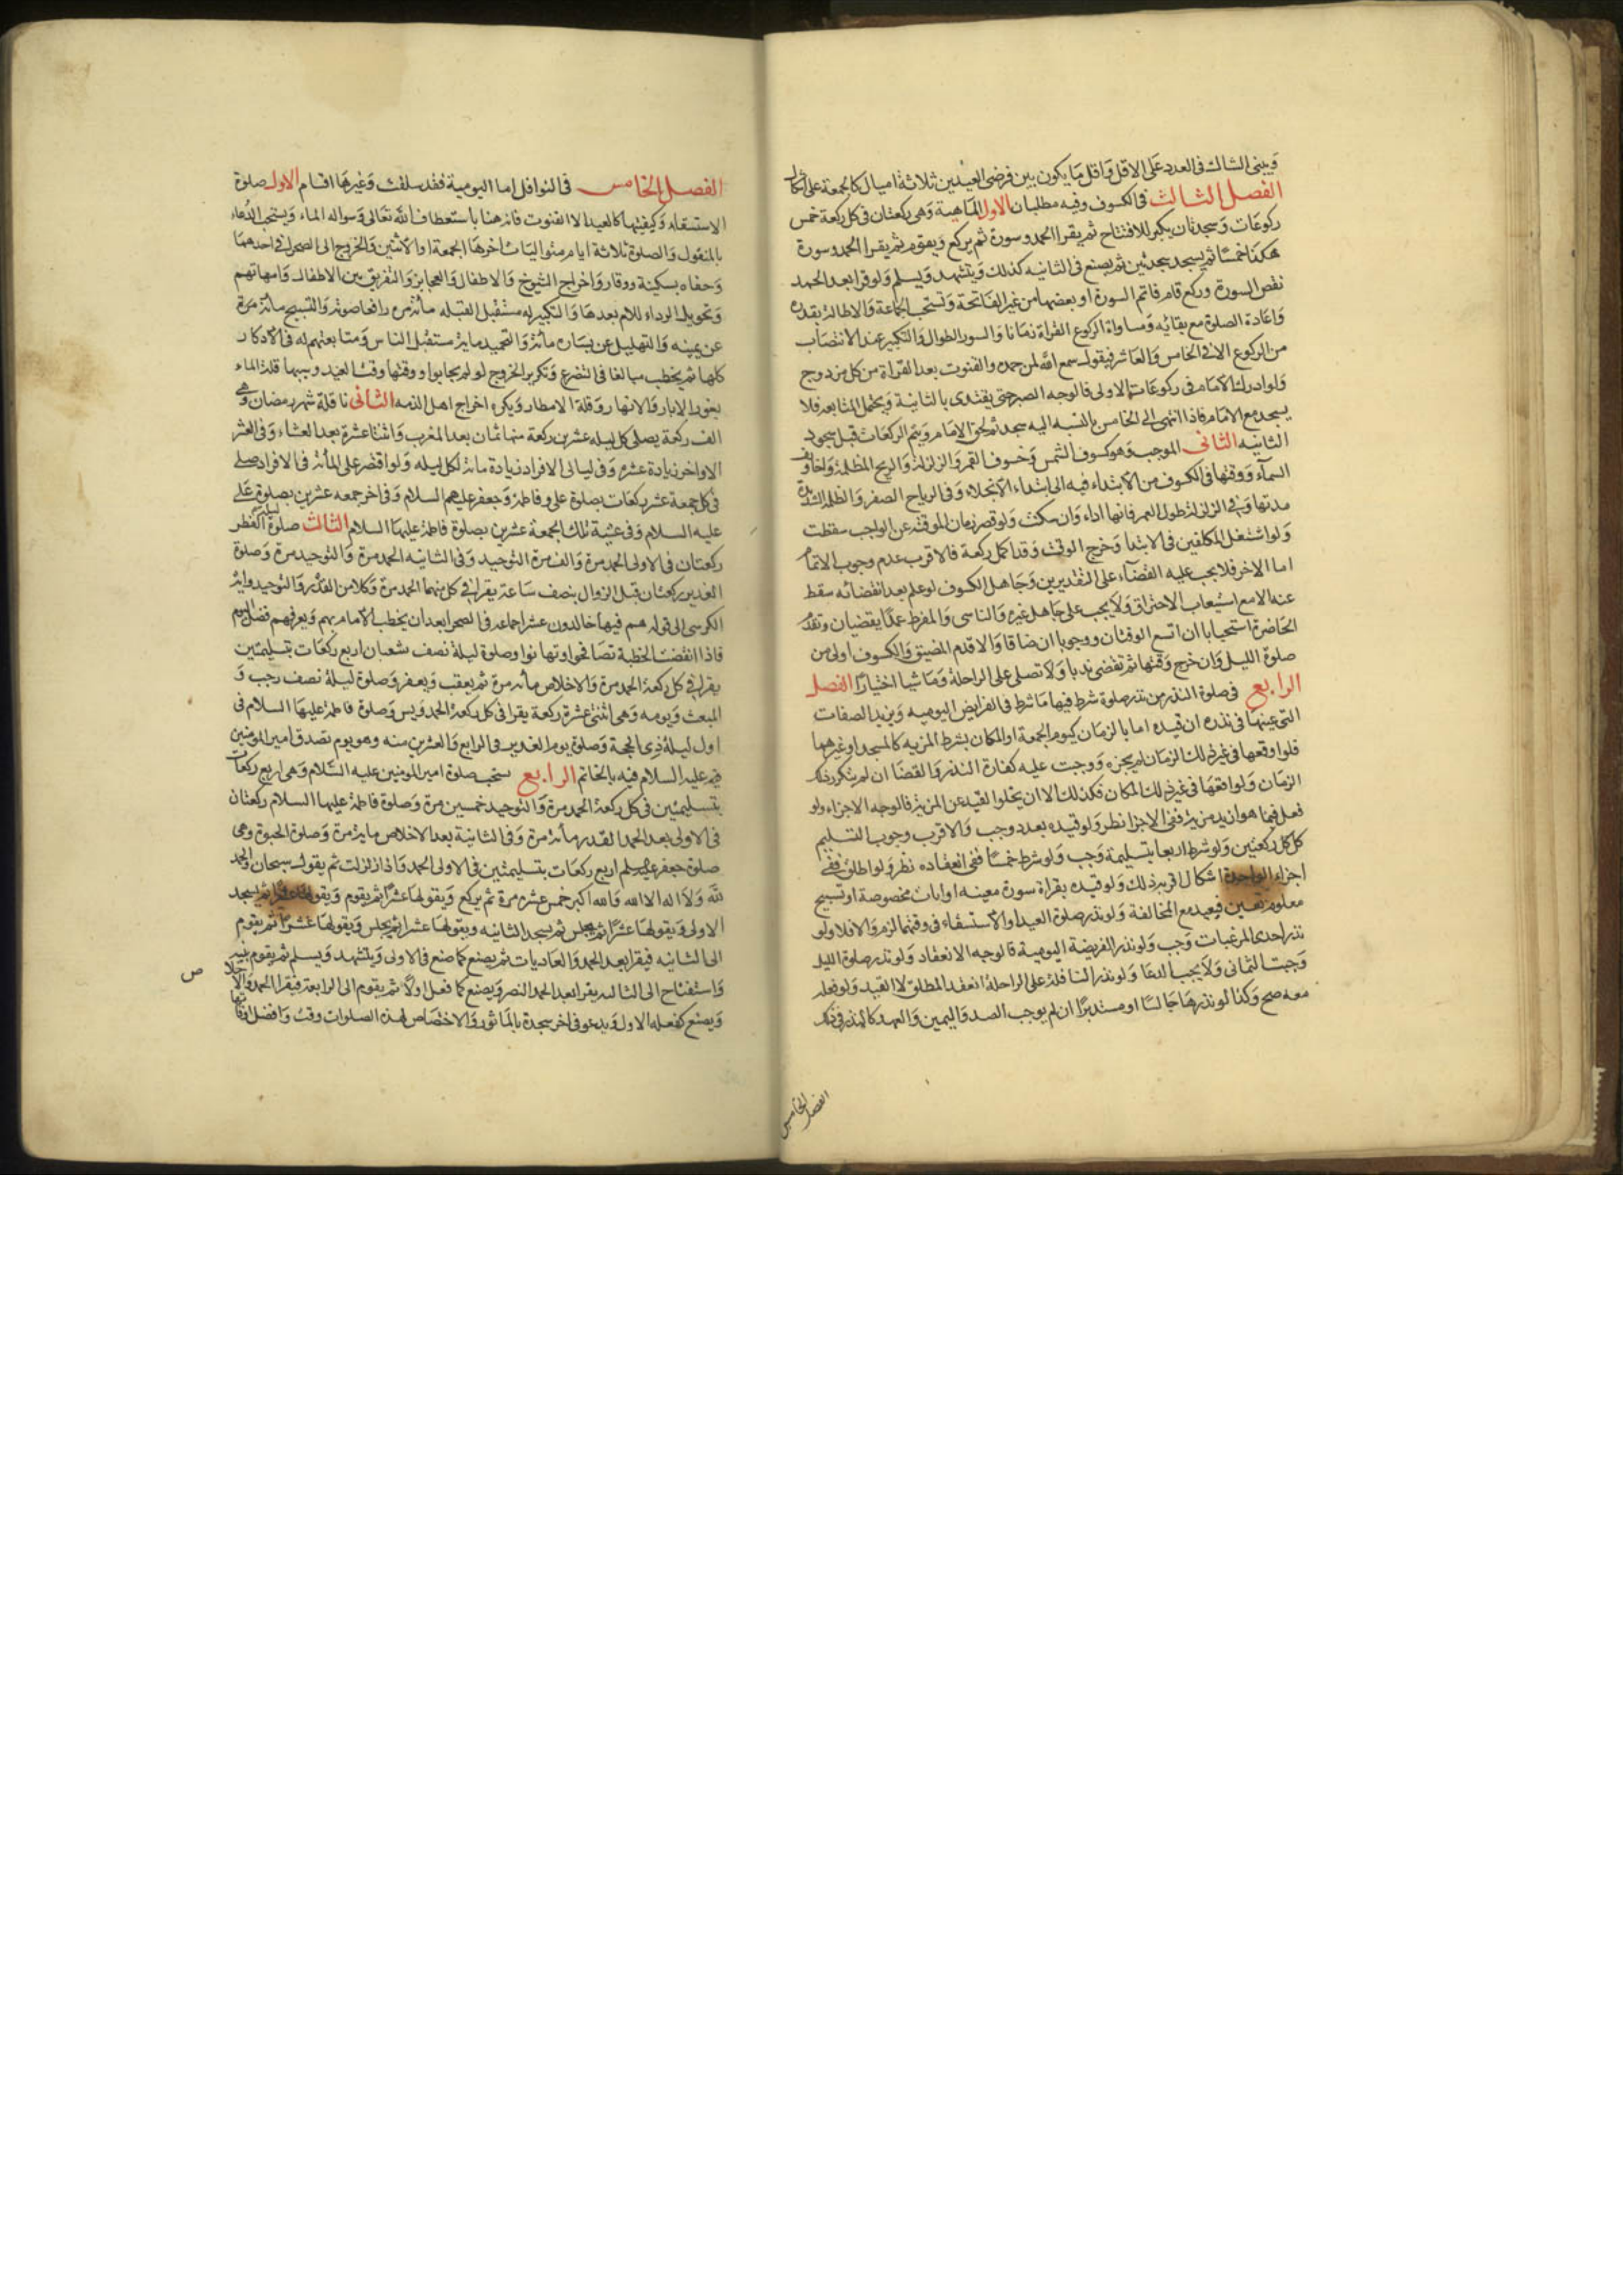 وَيبنى الشاك فى العدد عَلى الاقل وَاقل مَا يكون بين فرضى العيدين ثلاثة اميال كالجمعة على اشكال
الفصل الثالث فى الكسوف وفيه مطلبان الاول الماهية وَهى ركعتان فى كل ركعة خمس
ركوعَات وَسجدتان يكبر للافتتاح ثم يقرا الحمد وسورة ثم يركع وَيقوم ثم يقرا الحمد وسورة
هكذا خمسًا ثم يسجد سجدتين ثم يصنع فى الثانيه كذلك وَيتشهد وَيسلم وَلو قرا بعد الحمد
نقص السورة وركع قام فاتم السورة او بعضها من غير الفاتحة وَتستحب الجماعة وَالاطالة بقدره
وَاعَادة الصلوة مع بقائه وَمساواة الركوع القراة زمَانا وَالسور الطوال وَالتكبير عند الانتصَاب
من الركوع الا فى الخامس وَالعَاشر فيقول سمع الله لمن حمده والقنوت بعد القراة من كل مزدوج
وَلو ادرك الامَام فى ركوعَات الاولى فالوجه الصبر حتى يقتدى بالثانية وَيحتمل المتابعه فلا
يسجد مع الامَام فاذا انتهى الى الخامس بالنسبه اليه سجد ثم لحق الامَام وَيتم الركعَات قبل سجود
الثانيه الثانى الموجب وَهو كسوف الشمس وَخسوف القمر وَالزلزلة وَالريح المظلمة وَاخاويف
السمآء وَوقتها فى الكسوف من الابتداء فيه الى ابتداء الانجلاء وَفى الرياح الصفر وَالظلمه الشديدة
مدتها وَفى الزلزلة طول العمر فانها اداء وَان سكنت وَلو قصر زمان الموقته عن الواجب سقطت
وَلو اشتغل احد المكلفين فى الابتدا وَخرج الوقت وَقد اكمل ركعة فالاقرب عدم وجوب الاتمام
اما الاخر فلا يجب عليه القضآء على التقديرين وَجَاهل الكسوف لو علم بعد انقضائه سقط
عنه الا مع استيعاب الاحتراق وَلا يجب على جَاهل غيره وَالناسى وَالمفرط عمدًا يقضيان وتقدم
الحَاضرة استحبابا ان اتسع الوقتان ووجوبا ان ضاقا وَالا قدم المضيق وَالكسوف اولى من
صلوة الليل وَان خرج وَقتها ثم تقضى ندبا وَلا تصلى على الراحلة وَمَاشيا اختيارا الفصل
الرابع فى صلوة النذر من نذر صلوة شرط فيها مَا شرط فى الفرايض اليوميه وَيزيد الصفات
التى عينها فى نذره ان قيده اما بالزمَان كيوم الجمعة او المكان بشرط المزيه كالمسجد او غيرهما
فلو اوقعها فى غير ذلك الزمَان لم يجزه وَوجبت عليه كفارة النذر وَالقضَا ان لم يتكرر ذلك
الزمَان وَلو اوقعهَا فى غير ذلك المكان فكذلك الا ان يخلوا القيد عن المزية فالوجه الاجزاء ولو
فعل فيما هو ازيد مزية ففى الاجزا نظر وَلو قيده بعدد وجب وَالاقرب وجوب التسليم
كل ركعتين وَلو شرط اربعا بتسليمة وَجب وَلو شرط خمسًا ففى انعقاده نظر وَلو اطلق ففى
اجزاء الواحدة اشكال اقربه ذلك وَلو قيده بقراة سورة معينه او ايات مخصوصة او تسبيح
معلوم تعين فيعيد مع المخالفة وَلو نذر صلوة العيد او الاستسقاء فى وقتها لزم وَالا فلا ولو
نذر احدى المرغبات وَجب وَلو نذر الفريضة اليومية فالوجه الانعقاد وَلو نذر صلوة الليل
وَجبت الثمانى وَلا يجب الدعَا وَلو نذر النافلة على الراحلة انعقد المطلق لا القيد وَلو فعله
معه صح وَكذا لو نذرهَا جَالسًا او مستدبرًا ان لم يوجب الضد وَاليمين وَالعهد كالنذر فى ذلك
الفصل الخامس
الفصل الخامس فى النوافل اما اليومية فقد سلفت وَغيرهَا اقسام الاول صلوة
الاستسقاء وَكيفيتها كالعيد الا القنوت فانه هنا باستعطاف الله تعَالى وَسواله الماء وَيستحب الدُعاء
بالمنقول وَالصلوة ثلاثة ايام متواليَات اخرهَا الجمعة او الاثنين وَالخروج الى الصحراء فى احدهمَا
وَحفاه بسكينة ووقار وَاخراج الشيوخ وَالاطفال وَالعجايز وَالتفريق بين الاطفال وَامهاتهم
وَتحويل الرداء للامام بعدهَا وَالتكبير له مستقبل القبله مأة مره رافعا صوته وَالتسبيح مأة مرة
عن يمينه وَالتهليل عن يسَاره مأة وَالتحميد ماية مستقبل الناس وَمتابعتهم له فى الاذكار
كلها ثم يخطب مبالغا فى التضرع وَتكرير الخروج لو لم يجابوا ووقتها وقت العيد وسببها قلة الماء
بغور الابار وَالانهار وَقلة الامطار وَيكره اخراج اهل الذمه الثانى نافلة شهر رمضان وَهى
الف ركعة يصلى كل ليله عشرين ركعة منها ثمَان بعد المغرب وَاثنتا عشرة بعد العشاء وَفى العشر
الاواخر زيادة عشر وَفى ليالى الافراد زيادة مائة لكل ليله وَلو اقتصر على المأة فى الافراد صلى
فى كل جمعة عشر ركعَات بصلوة على وفاطمة وَجعفر عليهم السلام وَفى اخر جمعه عشرين بصلوة عَلى
عليه السلام وَفى عشية تلك الجمعة عشرين بصلوة فاطمة عليهَا السلام الثالث صلوة ليلة الفطر
ركعتان فى الاولى الحمد مرة وَالف مرة التوحيد وَفى الثانيه الحمد مرة وَالتوحيد مرة وَصلوة
الغدير ركعتان قبل الزوال بنصف سَاعة يقرا فى كل منهما الحمد مرة وَكلا من القدر وَالتوحيد واية
الكرسى الى قوله هم فيها خالدون عشرا جماعه فى الصحرا بعد ان يخطب الامَام بهم وَيعرفهم فضل اليوم
فاذا انقضت الخطبة تصَافحوا وتهانوا وصلوة ليلة نصف شعبان اربع ركعَات بتسليمتين
يقرا فى كل ركعة الحمد مرة وَالاخلاص مأئه مرة ثم يعقب وَيعفر وَصلوة ليلة نصف رجب وَ
المبعث وَيومه وَهى اثنتى عشرة ركعة يقرا فى كل ركعة الحمد وَيس وَصلوة فاطمة عليهَا السلام فى
اول ليلة ذى الحجة وَصلوة يوم الغدير فى الرابع وَالعشرين منه وهو يوم تصدق امير المومنين
فيه عليه السلام فيه بالخاتم الرابع يستحب صلوة امير المومنين عليه السَّلام وَهى اربع ركعَات
بتسليمتين فى كل ركعة الحمد مرة وَالتوحيد خمسين مرة وَصلوة فاطمة عليها السلام ركعتان
فى الاولى بعد الحمد القدر مأئة مرة وَفى الثانية بعد الاخلاص ماية مرة وَصلوة الحبوة وهى
صلوة جعفر عليه السلم اربع ركعَات بتسليمتين فى الاولى الحمد وَاذا زلزلت ثم يقول سبحان الله وَالحمد
لله وَلا اله الا الله وَالله اكبر خمس عشره مرة ثم يركع وَيقولهَا عشرًا ثم يقوم وَيقولها عشرا ثم يسجد
الاولى وَيقولهَا عشرًا ثم يجلس ثم يسجد الثانيه ويقولهَا عشرا ثم يجلس وَيقولهَا عَشرًا ثم يقوم
الى الثانيه فيقرا بعد الحمد وَالعَاديات ثم يصنع كما صنع فى الاولى وَيتشهد وَيسلم ثم يقوم بنيه
وَاستفتاح الى الثالثه يقرا بعد الحمد النصر وَيصنع كما فعل اولًا ثم يقوم الى الرابعة فيقرا الحمد وَالاخلاص
وَيصنع كفعله الاول وَيدعو فى اخر سجدة بالمَاثور وَلا اختصَاص لهذه الصلوات وقت وَافضل اوقاتها